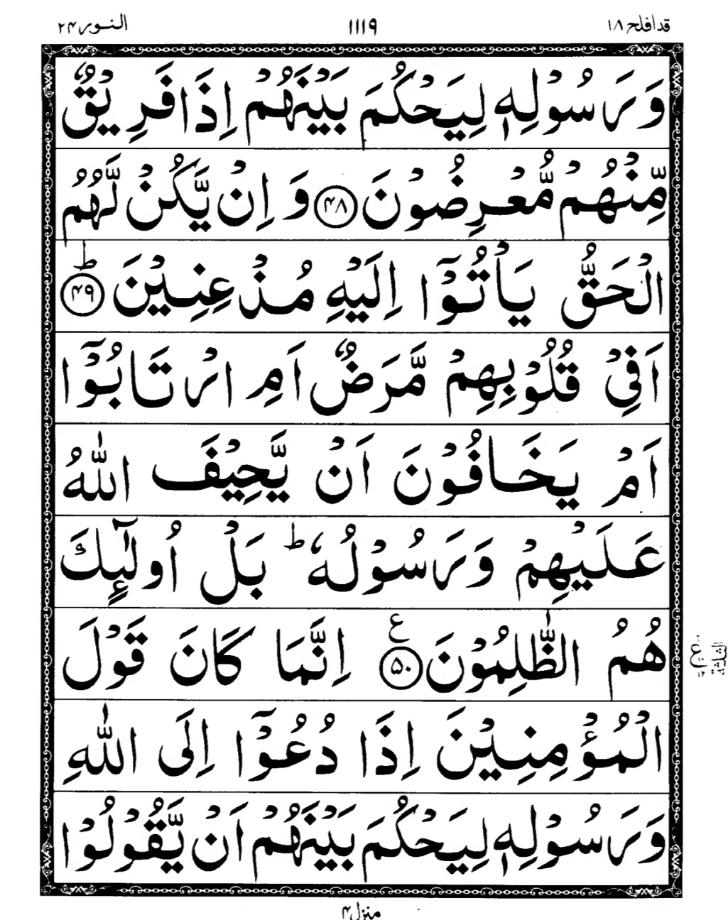 قدافلح ۱۸
۱۱۱۹
النور ۲۴
وَرَسُوۡلِهٖ لِيَحۡكُمَ بَيۡنَهُمۡ اِذَا فَرِيۡقٌ
مِّنۡهُمۡ مُّعۡرِضُوۡنَ ﴿۴۸﴾ وَ اِنۡ يَّكُنۡ لَّهُمُ
الۡحَقُّ يَاۡتُوۡۤا اِلَيۡهِ مُذۡعِنِيۡنَ ؕ ﴿۴۹﴾
اَفِىۡ قُلُوۡبِهِمۡ مَّرَضٌ اَمِ ارۡتَابُوۡۤا
اَمۡ يَخَافُوۡنَ اَنۡ يَّحِيۡفَ اللّٰهُ
عَلَيۡهِمۡ وَرَسُوۡلُهٗ ؕ بَلۡ اُولٰٓٮِٕكَ
هُمُ الظّٰلِمُوۡنَ ﴿۵۰﴾ ع اِنَّمَا كَانَ قَوۡلَ
الۡمُؤۡمِنِيۡنَ اِذَا دُعُوۡۤا اِلَى اللّٰهِ
وَرَسُوۡلِهٖ لِيَحۡكُمَ بَيۡنَهُمۡ اَنۡ يَّقُوۡلُوۡا
ع
۱۲
الثلثة
منزل ۴